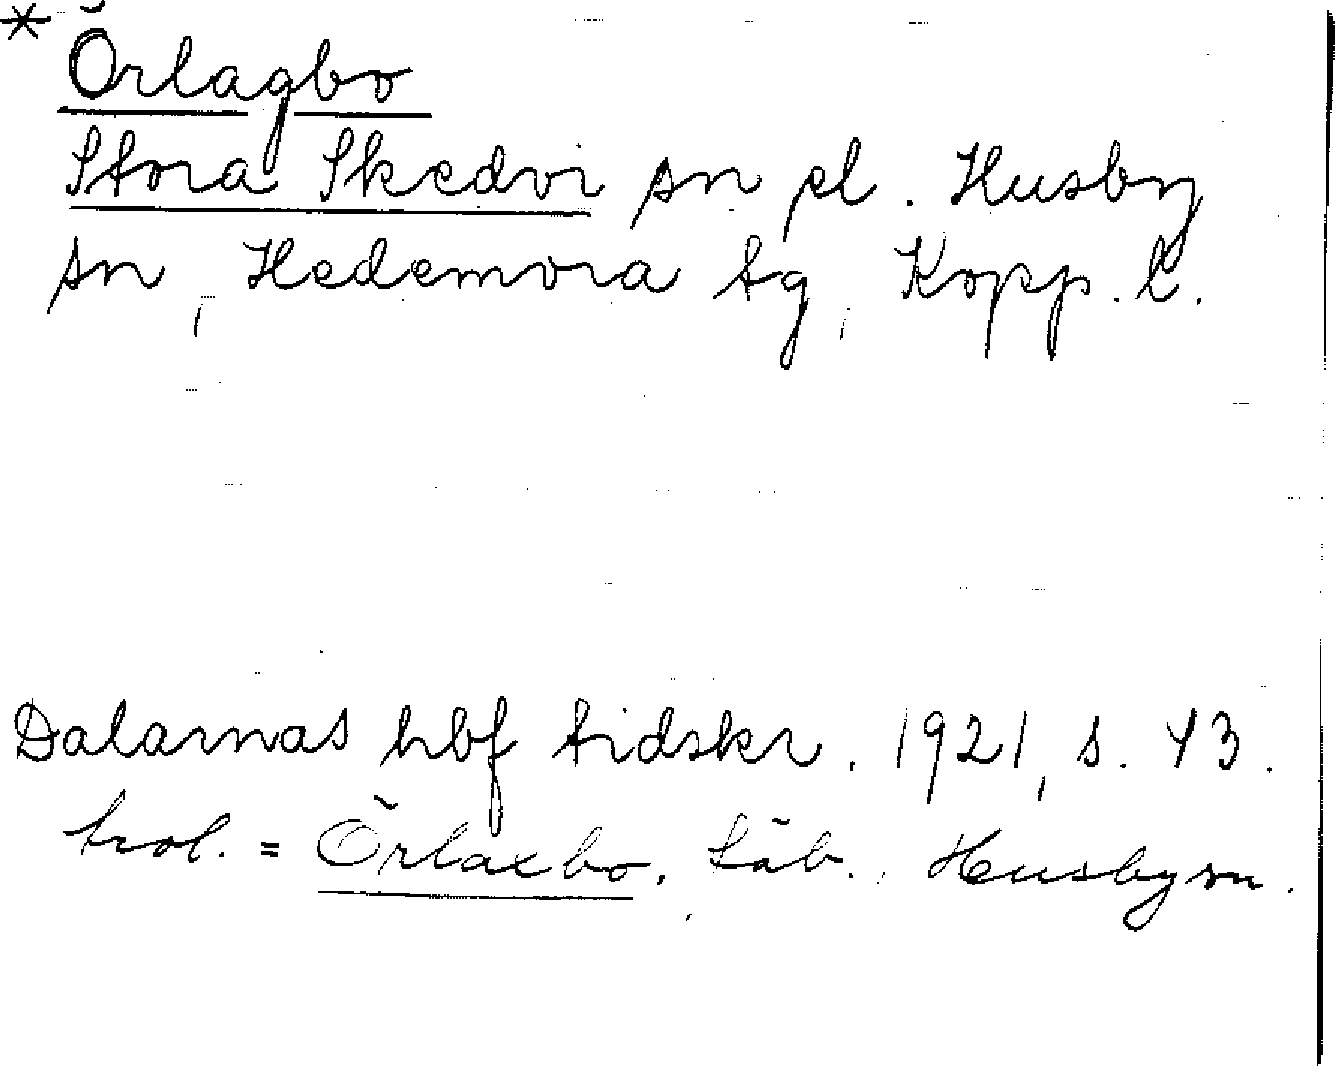 * Örlagbo
Stora Skedvi sn el. Husby
sn, Hedemora tg, Kopp. l.
Dalarnas hbf tidskr. 1921, s. 43.
trol. = Örlaxbo, fäb., Husby sn.